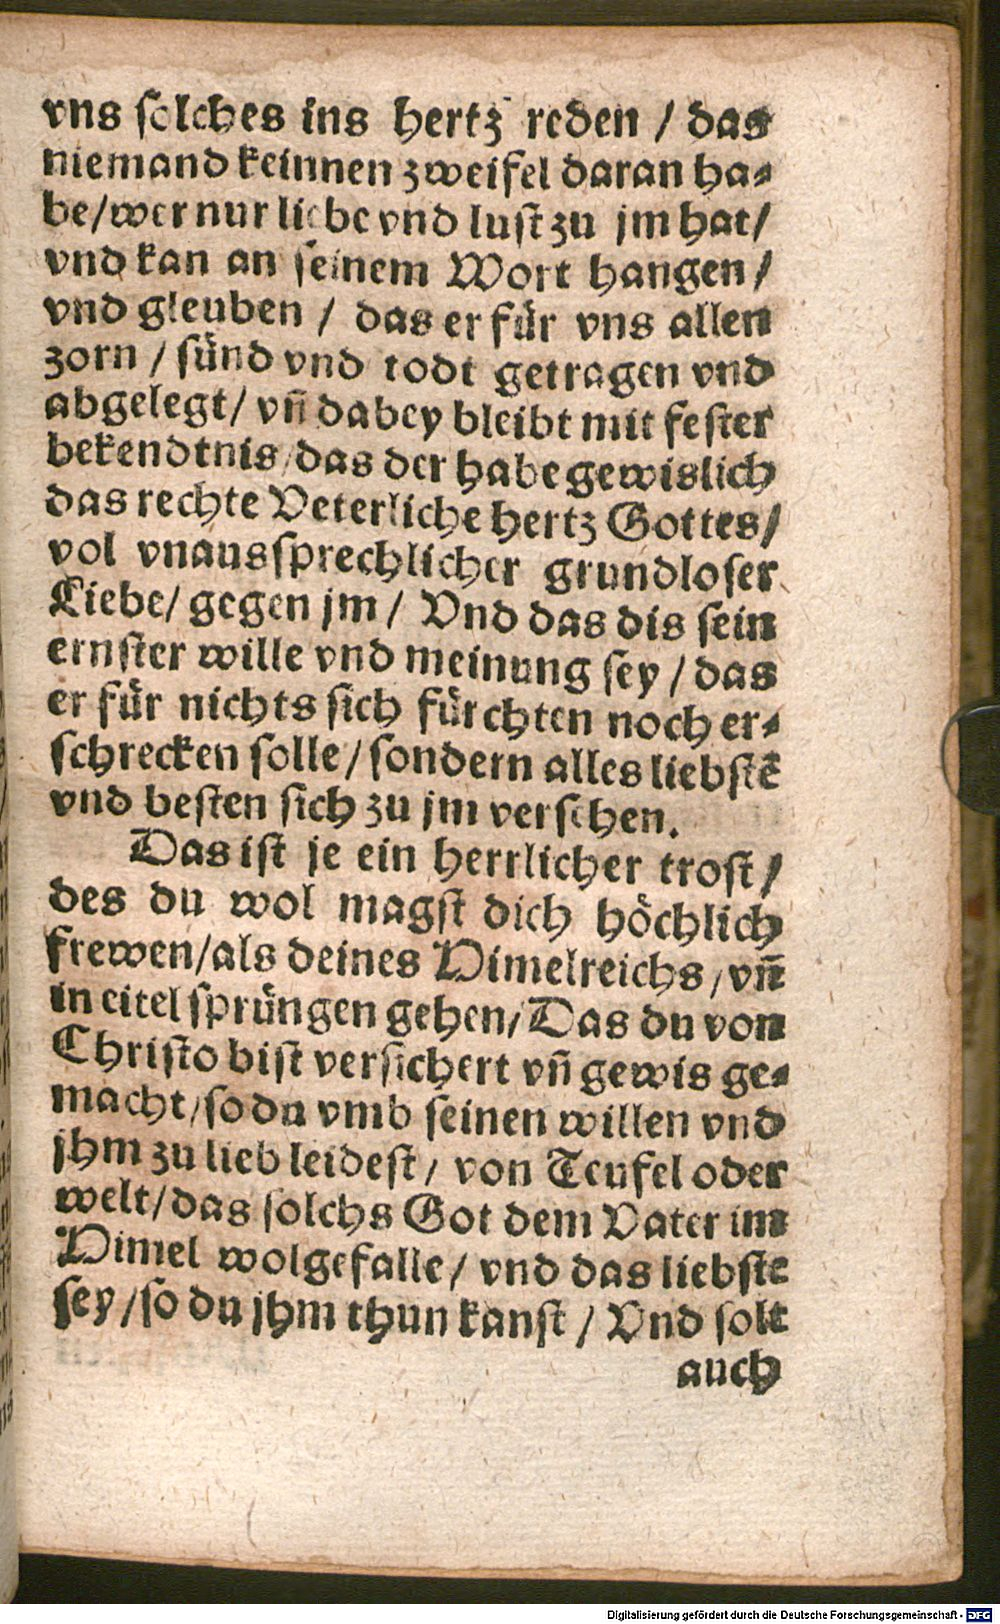 vns solches ins hertz reden / das
niemand keinnen zweifel daran ha⸗
be/wer nur liebe vnd lust zu jm hat/
vnd kan an seinem Wort hangen /
vnd gleuben / das er für vns allen
zorn / sünd vnd todt getragen vnd
abgelegt/ vñ dabey bleibt mit fester
bekendtnis/das der habe gewislich
das rechte Veterliche hertz Gottes/
vol vnaussprechlicher grundloser
Liebe/ gegen jm / Vnd das dis sein
ernster wille vnd meinung sey / das
er für nichts sich fürchten noch er⸗
schrecken solle/ sondern alles liebstē
vnd besten sich zu jm versehen.
Das ist je ein herrlicher trost /
des du wol magst dich höchlich
frewen/als deines Himelreichs, vñ
in eitel sprüngen gehen/ Das du von
Christo bist versichert vñ gewis ge⸗
macht/so du vmb seinen willen vnd
jhm zu lieb leidest/ von Teufel oder
welt/das solchs Got dem Vater im
Himel wolgefalle/ vnd das liebste
sey/so du jhm thun kanst / Vnd solt
auch
Digitalisierung gefördert durch die Deutsche Forschungsgemeinschaft - DFG